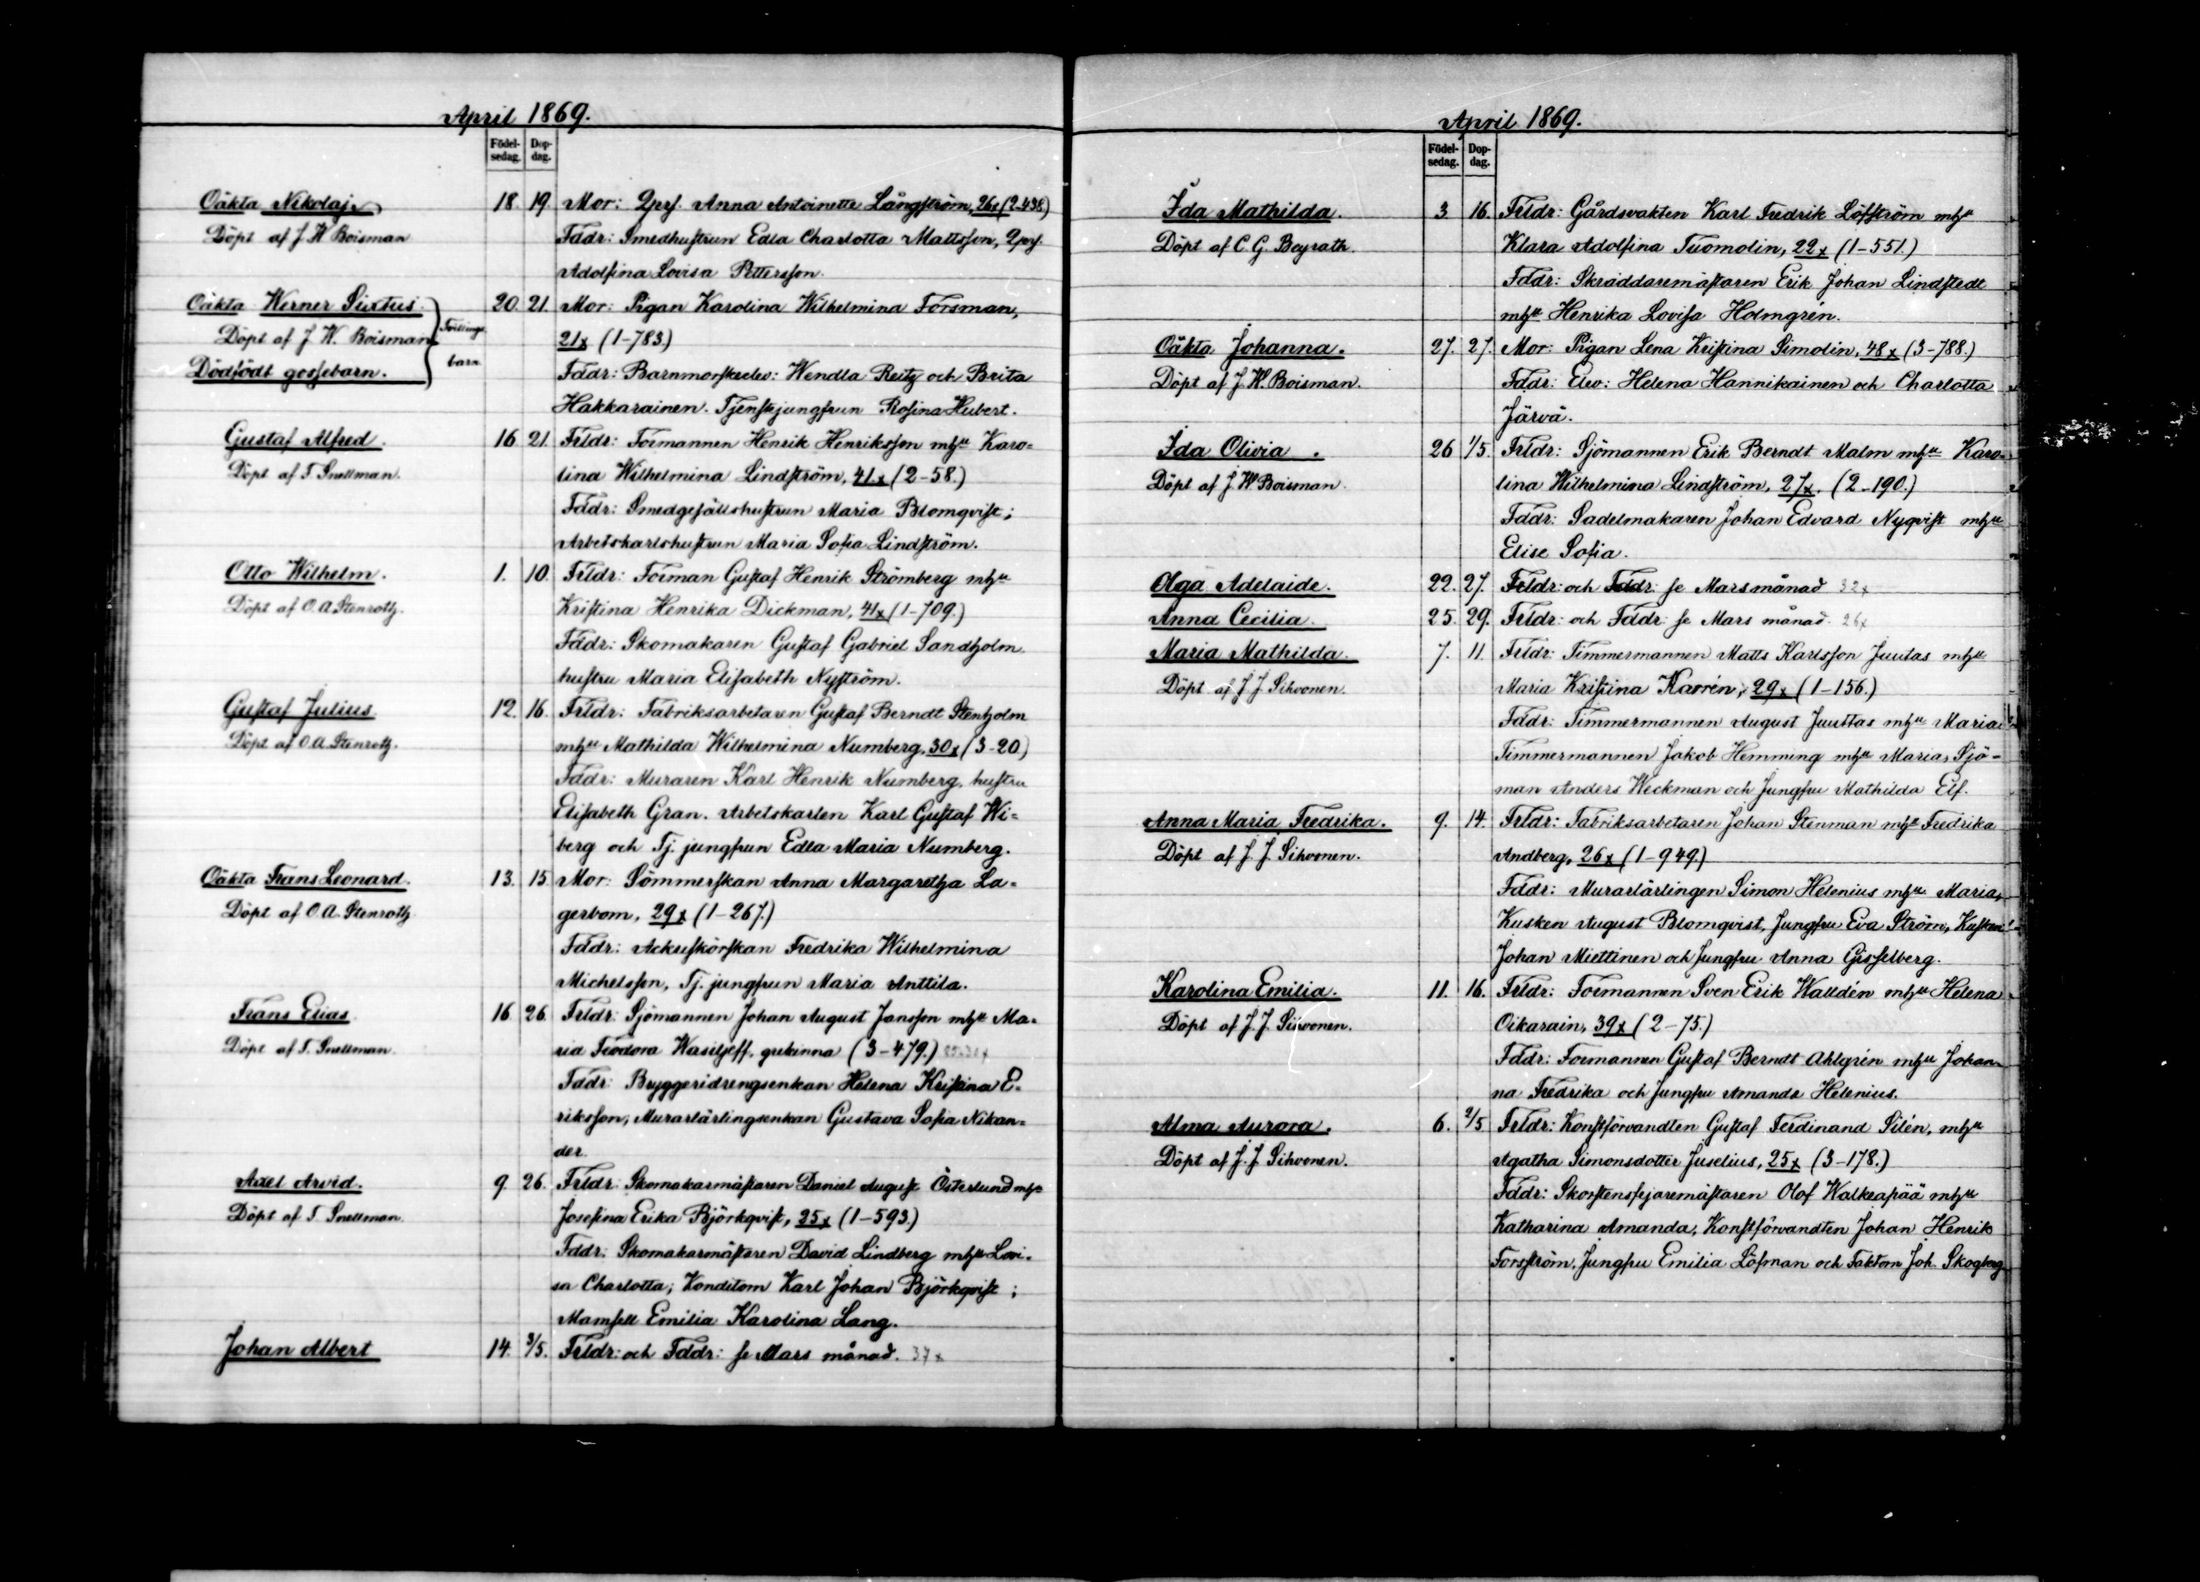 April 1869.
Födel-
sedag.
Dop-
dag.
Oäkta Nikolaj. 18. 19. Mor: Qprs. Anna Antoinette Långström, 26x (2-438)
Döpt af J W Boisman Fddr: Smedhustrun Edla Charlotta Mattsson, Qprs.
Adolfina Lovisa Pettersson.
Oäkta Werner Sixtus. 20. 21. Mor: Pigan Karolina Wilhelmina Forsman,
Döpt af J. W. Boisman. Tvillinge 21x (1-783.)
Dödfödt gossebarn. barn Fddr: Barnmorskeelev: Wendla Reitz och Brita
Hakkarainen. Tjenstejungfrun Rosina Hubert.
Gustaf Alfred. 16 21. Frldr: Formannen Henrik Henriksson mhu Karo-
Döpt af T. Snellman. lina Wilhelmina Lindström, 41x (2-58.)
Fddr: Smedgesällshustrun Maria Blomqvist;
Arbetskarlshustrun Maria Sofia Lindström.
Otto Wilhelm. 1. 10. Frldr: Forman Gustaf Henrik Strömberg mhu
Döpt af O. A. Stenroth. Kristina Henrika Dickman, 41x (1-709.)
Fddr: Skomakaren Gustaf Gabriel Sandholm
hustru Maria Elisabeth Nyström.
Gustaf Julius 12. 16. Frldr: Fabriksarbetaren Gustaf Berndt Stenholm
Döpt af O. A. Stenroth. mhu Mathilda Wilhelmina Numberg, 30x (3-20.)
Fddr: Muraren Karl Henrik Numberg, hustru
Elisabeth Gran. Arbetskarlen Karl Gustaf Wi-
berg och Tj. jungfrun Edla Maria Numberg.
Oäkta Frans Leonard. 13. 15. Mor: Sömmerskan Anna Margaretha La-
Döpt af O. A. Stenroth gerbom, 29x (1-267.)
Fddr: Ackuskörskan Fredrika Wilhelmina
Michelsson, Tj. jungfrun Maria Anttila.
Frans Elias. 16 26. Frldr: Sjömannen Johan August Jansson mhu Ma-
Döpt af T. Snellman. ria Feodora Wasiljeff, grekinna (3-479.)
Fddr: Bryggeridrengsenkan Helena Kristina E-
riksson, Murarlärlingsenkan Gustava Sofia Nikan-
der.
Axel Arvid. 9. 26. Frldr: Skomakarmästaren Daniel August Österlund mhu
Döpt af T. Snellman. Josefina Erika Björkqvist, 35x (1-593.)
Fddr: Skomakarmästaren David Lindberg mhu Lovi-
sa Charlotta; Konditorn Karl Johan Björkqvist;
Mamsell Emilia Karolina Lang.
Johan Albert 14. 3/5. Frldr: och Fddr: se Mars månad. 37x
April 1869.
Födel-
sedag.
Dop-
dag.
Ida Mathilda. 3. 16. Frldr: Gårdsvakten Karl Fredrik Löfström mhu
Döpt af C. G. Beyrath. Klara Adolfina Tuomolin, 22x (1-551.)
Fddr: Skräddaremästaren Erik Johan Lindstedt
mhu Henrika Lovisa Holmgrén.
Oäkta Johanna. 27. 27. Mor: Pigan Lena Kristina Simolin, 48x (3-788.)
Döpt af J. W. Boisman. Fddr: Elev: Helena Hannikainen och Charlotta
Järvä.
Ida Olivia. 26 1/5. Frldr: Sjömannen Erik Berndt Malm mhu Karo-
Döpt af J W Boisman. lina Wilhelmina Lindström, 27x. (2-190.)
Fddr: Sadelmakaren Johan Edvard Nyqvist mhu
Elise Sofia.
Olga Adelaide. 22. 27. Frldr: och Fddr: se Marsmånad 32x
Anna Cecilia. 25. 29. Frldr: och Fddr: se Mars månad. 26x
Maria Mathilda. 7. 11. Frldr: Timmermannen Matts Karlsson Juutas mhu
Döpt af J. J. Sihvonen. Maria Kristina Karrén, 29x (1-156.)
Fddr: Timmermannen August Juuttas mhu Maria.
Timmermannen Jakob Hemming mhu Maria, Sjö-
man Anders Weckman och Jungfru Mathilda Elf.
Anna Maria Fredrika. 9. 14. Frldr: Fabriksarbetaren Johan Stenman mhu Fredrika
Döpt af J. J. Sihvonen. Andberg, 26x (1-949.)
Fddr: Murarlärlingen Simon Helenius mhu Maria,
Kusken August Blomqvist, Jungfru Eva Ström, Kusken
Johan Miettinen och Jungfru Anna Gisselberg.
Karolina Emilia. 11. 16. Frldr: Formannen Sven Erik Walldén mhu Helena
Döpt af J. J. Sihvonen. Oikarain, 39x (2-75.)
Fddr: Formannen Gustaf Berndt Ahlgrén mhu Johan-
na Fredrika och Jungfru Amanda Helenius.
Alma Aurora. 6. 2/5 Frldr: Konstförvandten Gustaf Ferdinand Silén, mhu
Döpt af J. J. Sihvonen. Agatha Simonsdotter Juselius, 25x (3-178.)
Fddr: Skorstensfejaremästaren Olof Walkeapää mhu
Katharina Amanda, Konstförvandten Johan Henrik
Forsström, Jungfru Emilia Löfman och Faktorn Joh. Skogberg